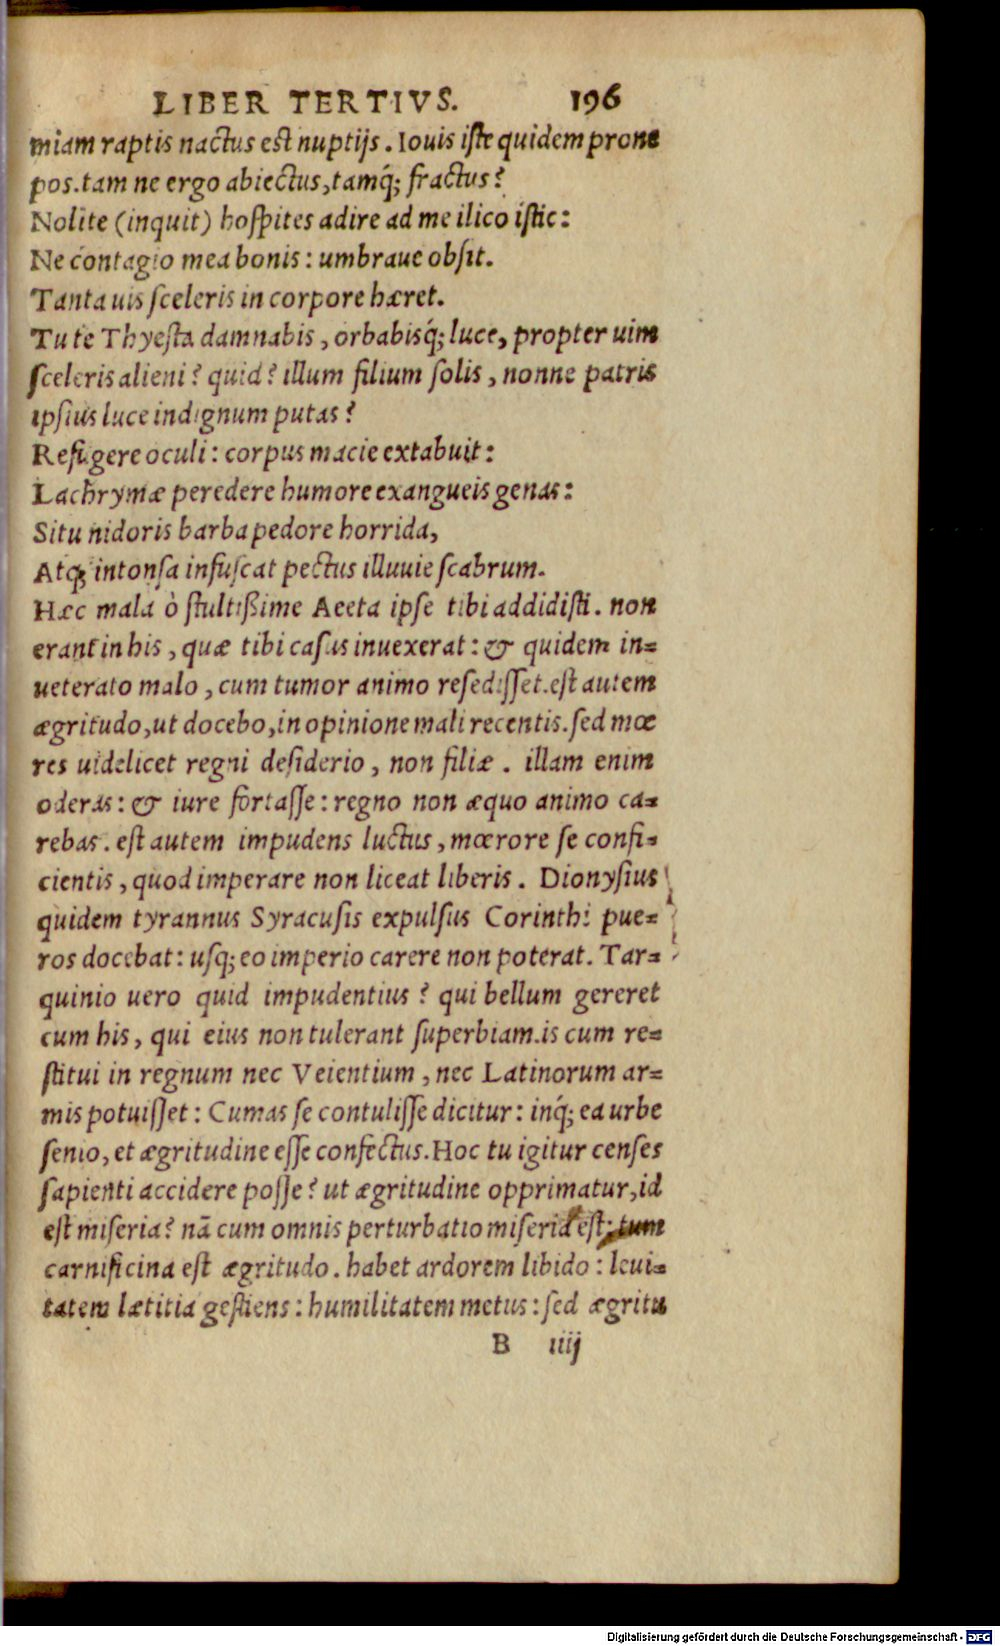 LIBER TERTIVS. 196
miam raptis nactus est nuptijs. Iouis iste quidem prone
pos. tam ne ergo abiectus, tamq́; fractus?
Nolite (inquit) hospites adire ad me ilico istic:
Ne contagio mea bonis: umbraue obsit.
Tanta uis sceleris in corpore hæret.
Tu te Thyesta damnabis, orbabisq́; luce, propter uim
sceleris alieni? quid? illum filium solis, nonne patris
ipsius luce indignum putas?
Refugere oculi: corpus macie extabuit:
Lachrymæ peredere humore exangueis genas:
Situ nidoris barba pedore horrida,
Atq; intonsa infuscat pectus illuuie scabrum.
Hæc mala ò stultißime Aeeta ipse tibi addidisti. non
erant in his, quæ tibi casus inuexerat: & quidem in=
ueterato malo, cum tumor animo resedisset. est autem
ægritudo, ut docebo, in opinione mali recentis. sed mœ
res uidelicet regni desiderio, non filiæ. illam enim
oderas: & iure fortasse: regno non æquo animo ca=
rebas. est autem impudens luctus, mœrore se confi=
cientis, quod imperare non liceat liberis. Dionysius
quidem tyrannus Syracusis expulsus Corinthi pue=
ros docebat: usq; eo imperio carere non poterat. Tar=
quinio uero quid impudentius? qui bellum gereret
cum his, qui eius non tulerant superbiam. is cum re=
stitui in regnum nec Veientium, nec Latinorum ar=
mis potuisset: Cumas se contulisse dicitur: inq́; ea urbe
senio, et ægritudine esse confectus. Hoc tu igitur censes
sapienti accidere posse? ut ægritudine opprimatur, id
est miseria? nā cum omnis perturbatio miseria est: tum
carnificina est ægritudo. habet ardorem libido: leui=
tatem lætitia gestiens: humilitatem metus: sed ægritu
B iiij
Digitalisierung gefördert durch die Deutsche Forschungsgemeinschaft - DFG